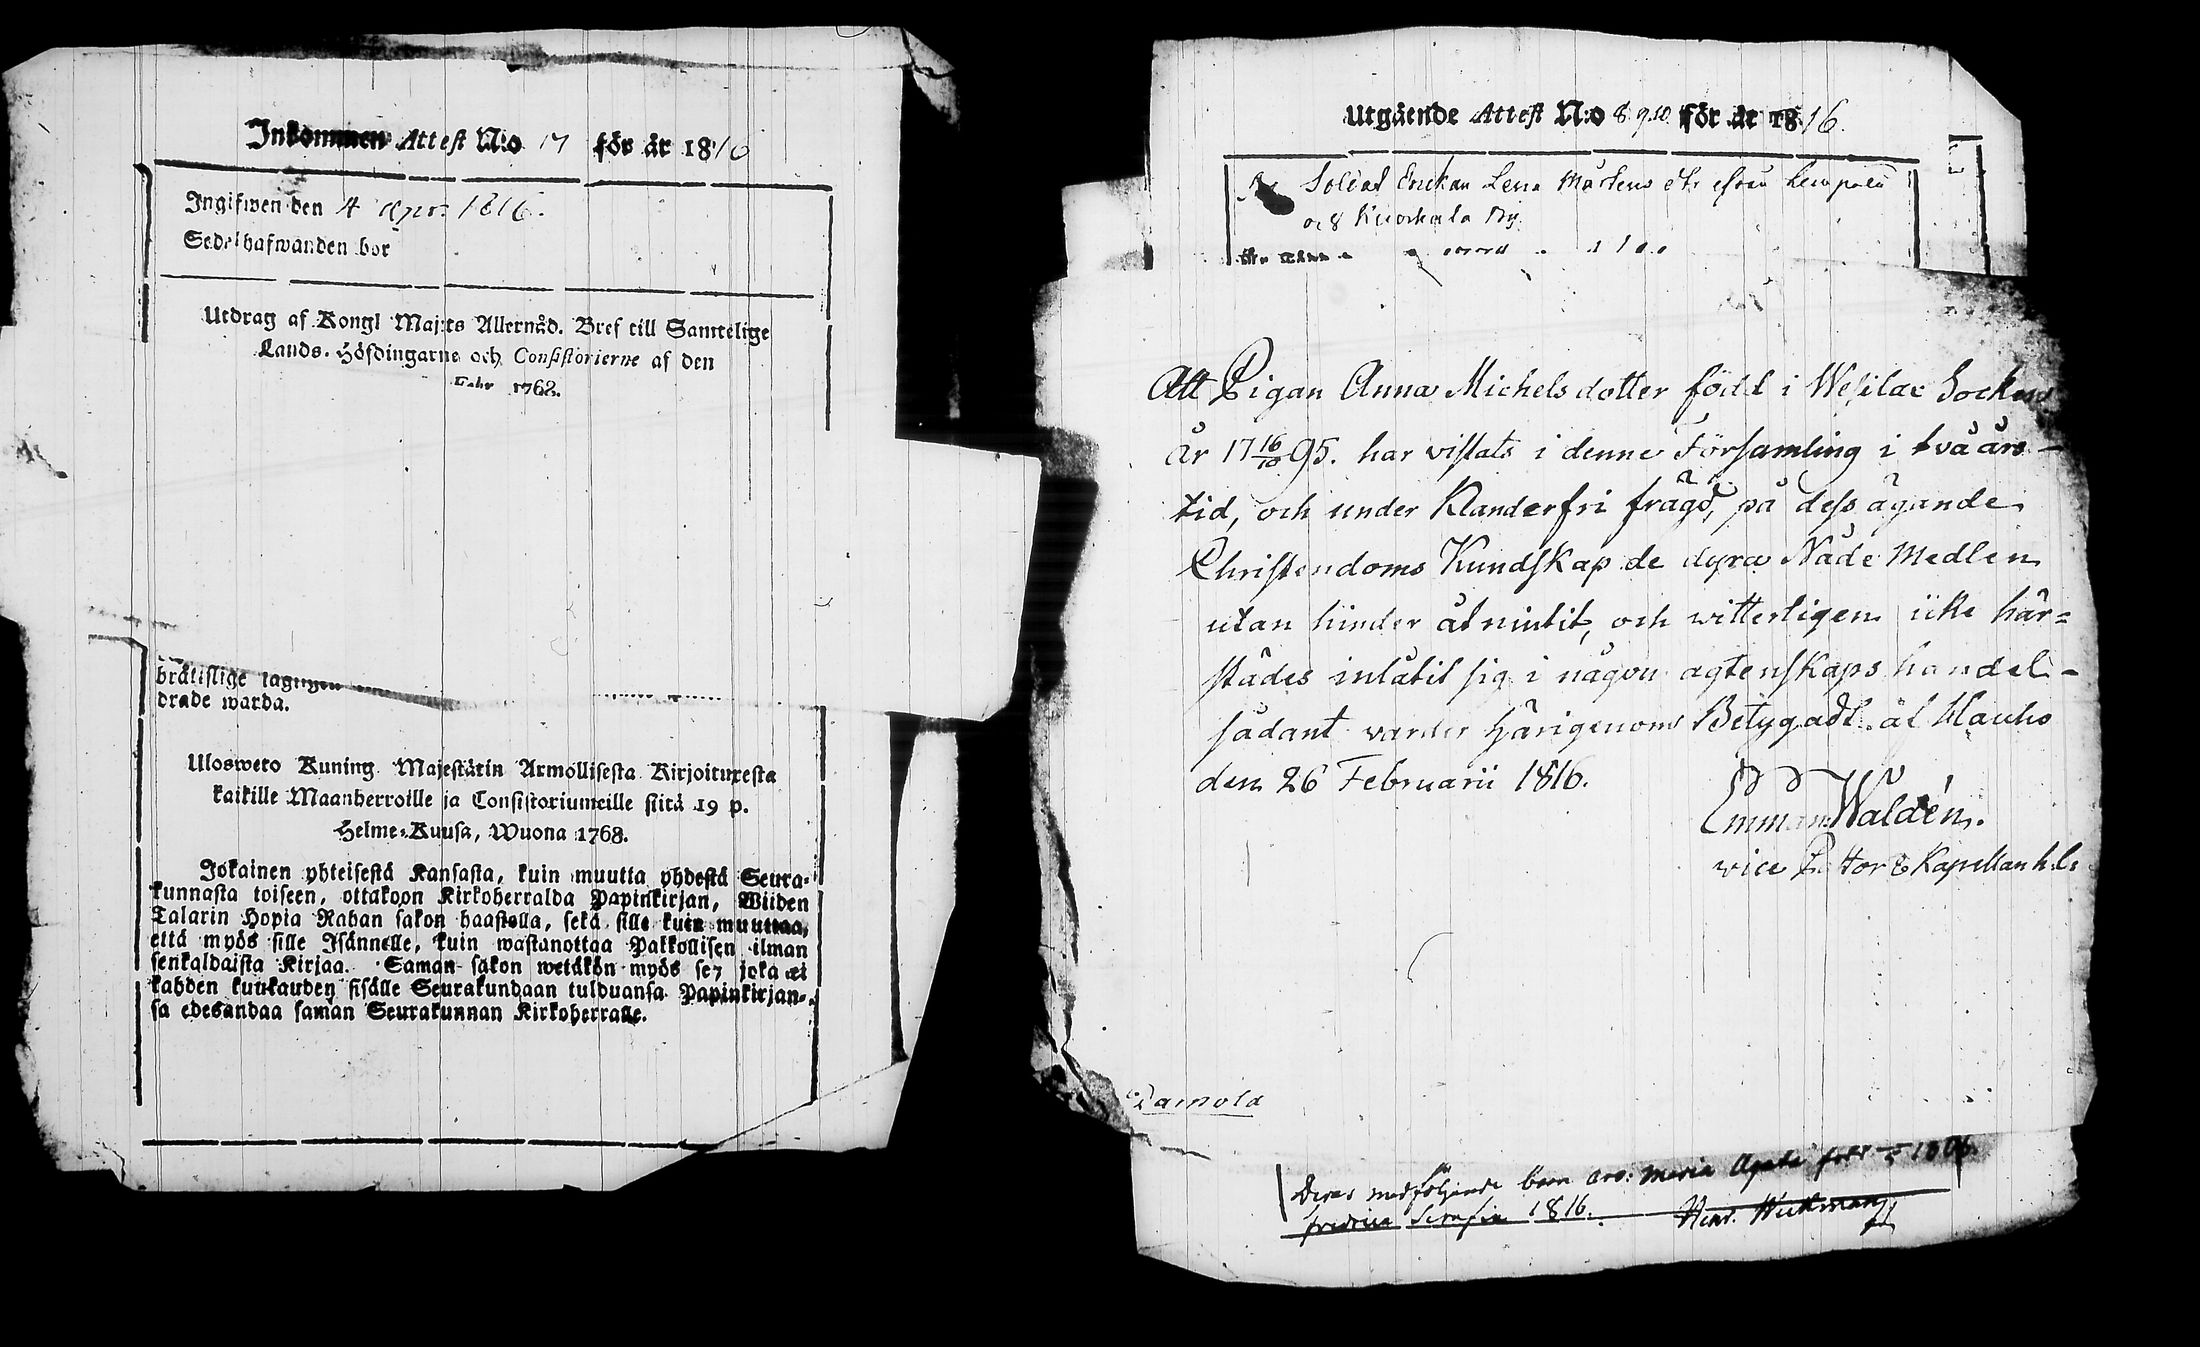 Inkommen Attest N:o 17 för år 1816
Ingifwen den 4 apr. 1816.
Sedelhafwanden bor
Utdrag af Kongl Maj:ts Allernåd. Bref till Samtelige
Lands-Höfdingarne och Consistorierne af den
Febr 1768.
bråtislige
drade warda.
Ulosweto Kuning. Majestätin Armollisesta Kirjoituxesta
kaikille Maanherroille ja Consistoriumeille siitä 19 p.
Helme-Kuusa, Wuona 1768.
Jokainen yhteisestä Kansasta, kuin muutta yhdestä Seura-
kunnasta toiseen, ottakoon Kirkoherralda Papinkirjan, Wiiden
Talarin Hopia Rahan sakon haastolla, sekä sille kuin muuttaa,
että myös sille Isännelle, kuin wastanottaa Palkollisen ilman
senkaldaista Kirjaa. Saman sakon wetäkön myös se, joka ei
kahden kuukauden sisälle Seurakundaan tulduansa Papinkirjan-
sa edesandaa saman Seurakunnan Kirkoherralle.
Utgående Attest N:o 8 9.10 för år 1816.
Soldat Enckan Lena Mårtens dtr
och By
Att Pigan Anna Michelsdotter född i Wesilax Socken
år 17 16/10 95. har vistats i denne Församling i två års
tid, och under Klanderfri frägd, på dess ägande
Christendoms Kundskap de dyra Nåde Medlen
utan hinder åtniutit, och witterligen icke här=
städes inlåtit sig i någon ägtenskaps handel -
sådant warder härigenom Betygadt. af Hauho
den 26 Februarii 1816.
Emman Waldén.
vice Pastor & Kapellan
Deras medföljande barn äro: Maria Agata född 1806.
Fredrica Serafia 1816. Henr. Wickman